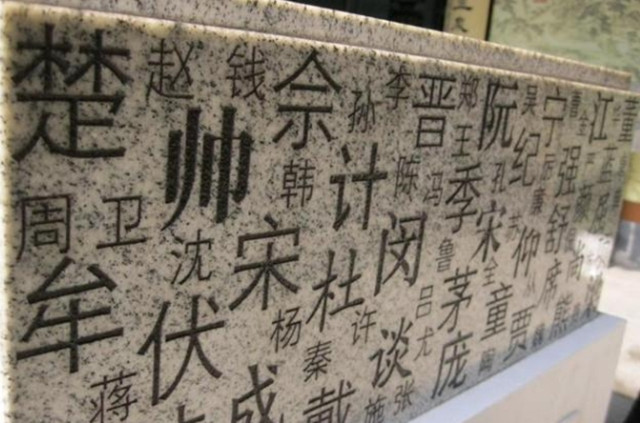 楚 赵 钱 佘 孙 李 晋 郑 阮 吴 宁 曹 江 董
帅 韩 计 陈 王 纪 强
周 卫 冯 季 孔 廉
沈 宋 闵 鲁 宋 苏 仰 舒 尚
牟 伏 杨 杜 许 吕 茅 全 童 席 熊
秦 谈 尤 庞 陶 贾 魏
蒋 成 戴 施 张